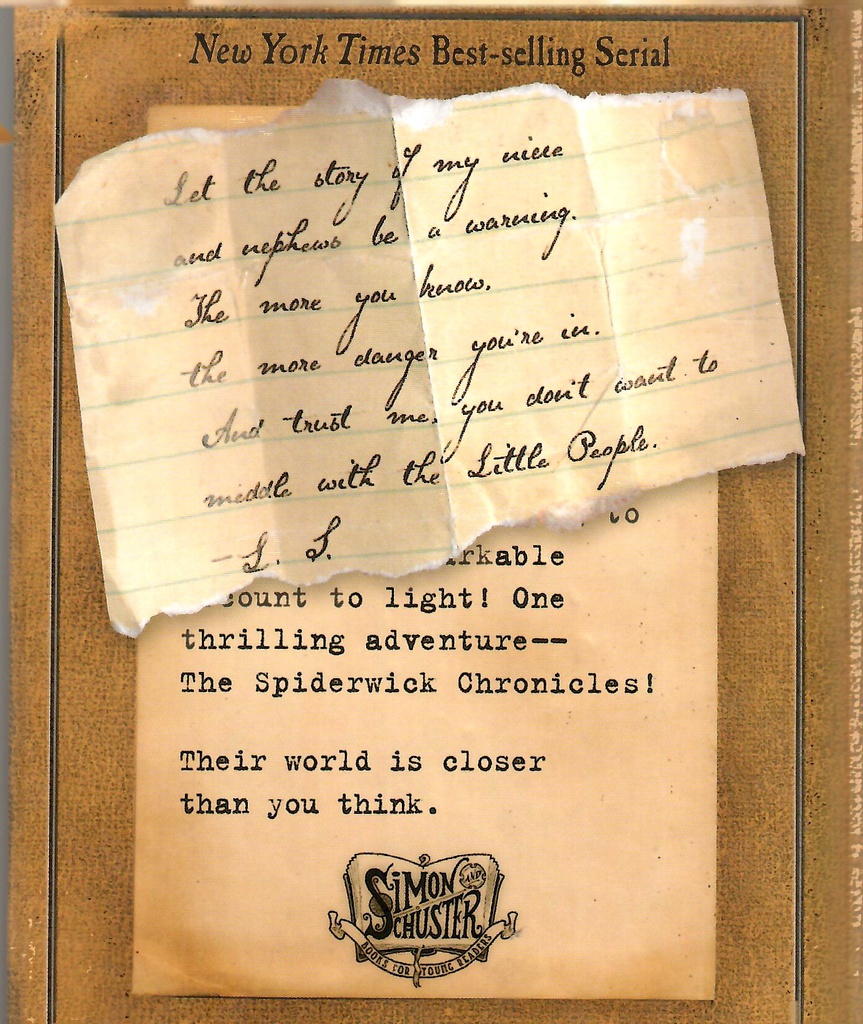 New York Times Best-selling Serial
Let the story of my niece
and nephews be a warning.
The more you know.
the more danger you're in.
And trust me. you don't want to
middle with the Little People.
- L. S.
to
rkable
count to light! One
thrilling adventure--
The Spiderwick Chronicles!
Their world is closer
than you think.
SIMON AND
SCHUSTER
BOOKS FOR YOUNG READERS